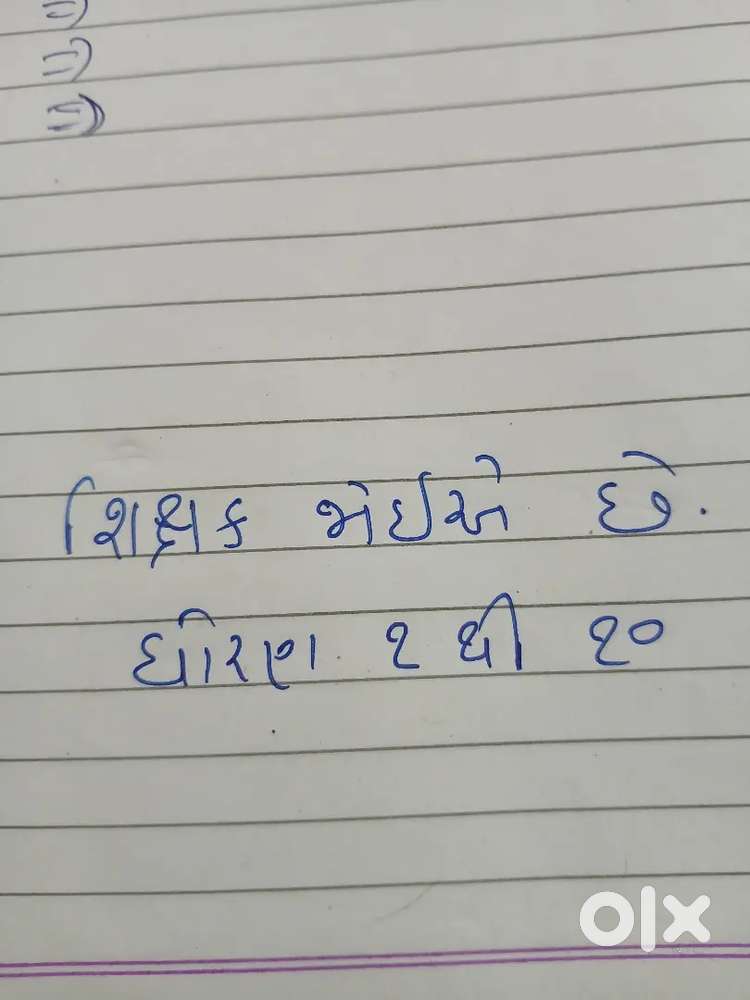 શિક્ષક જોઈએ છે.
ધોરણ ૧ થી ૧૦
olx